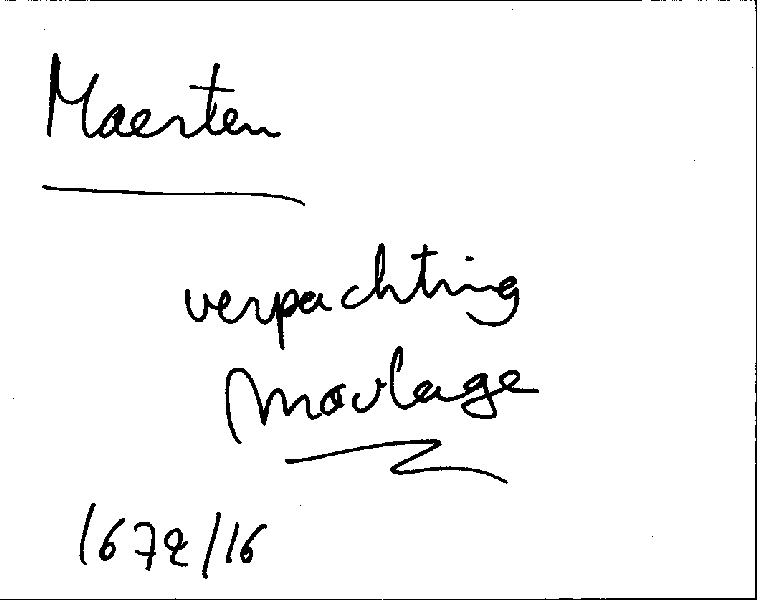 Maerten
verpachting
moulage
1672/16